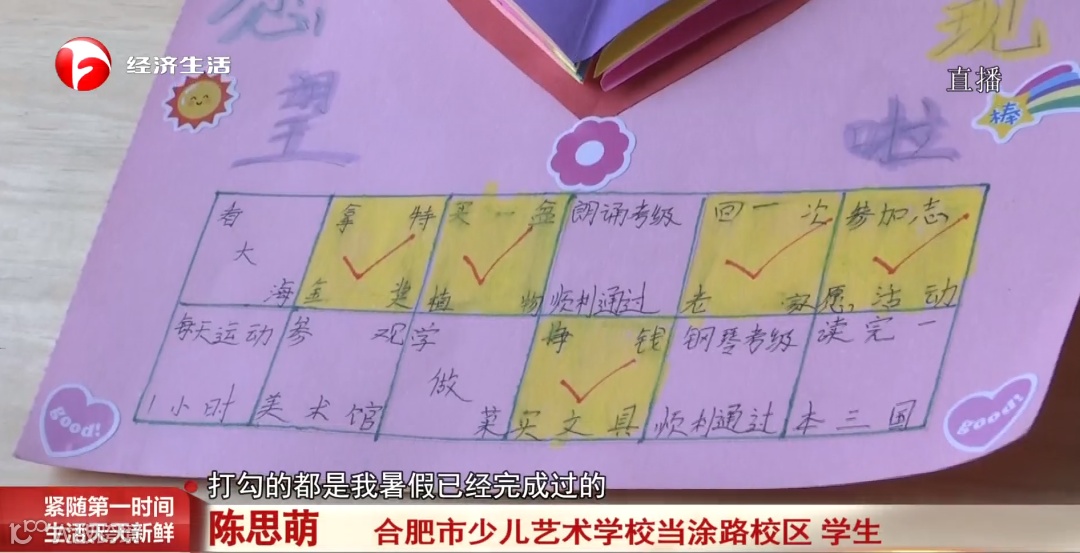 经济生活
直播
愿 现
望 啦
棒
看大海
拿特金奖
买一盆植物
朗诵考级顺利通过
回一次老家
参加志愿活动
每天运动1小时
参观美术馆
学做菜
挣钱买文具
钢琴考级顺利通过
读完一本三国
good!
good!
打勾的都是我暑假已经完成过的
紧随第一时间
生活天天新鲜
陈思萌 合肥市少儿艺术学校当涂路校区 学生